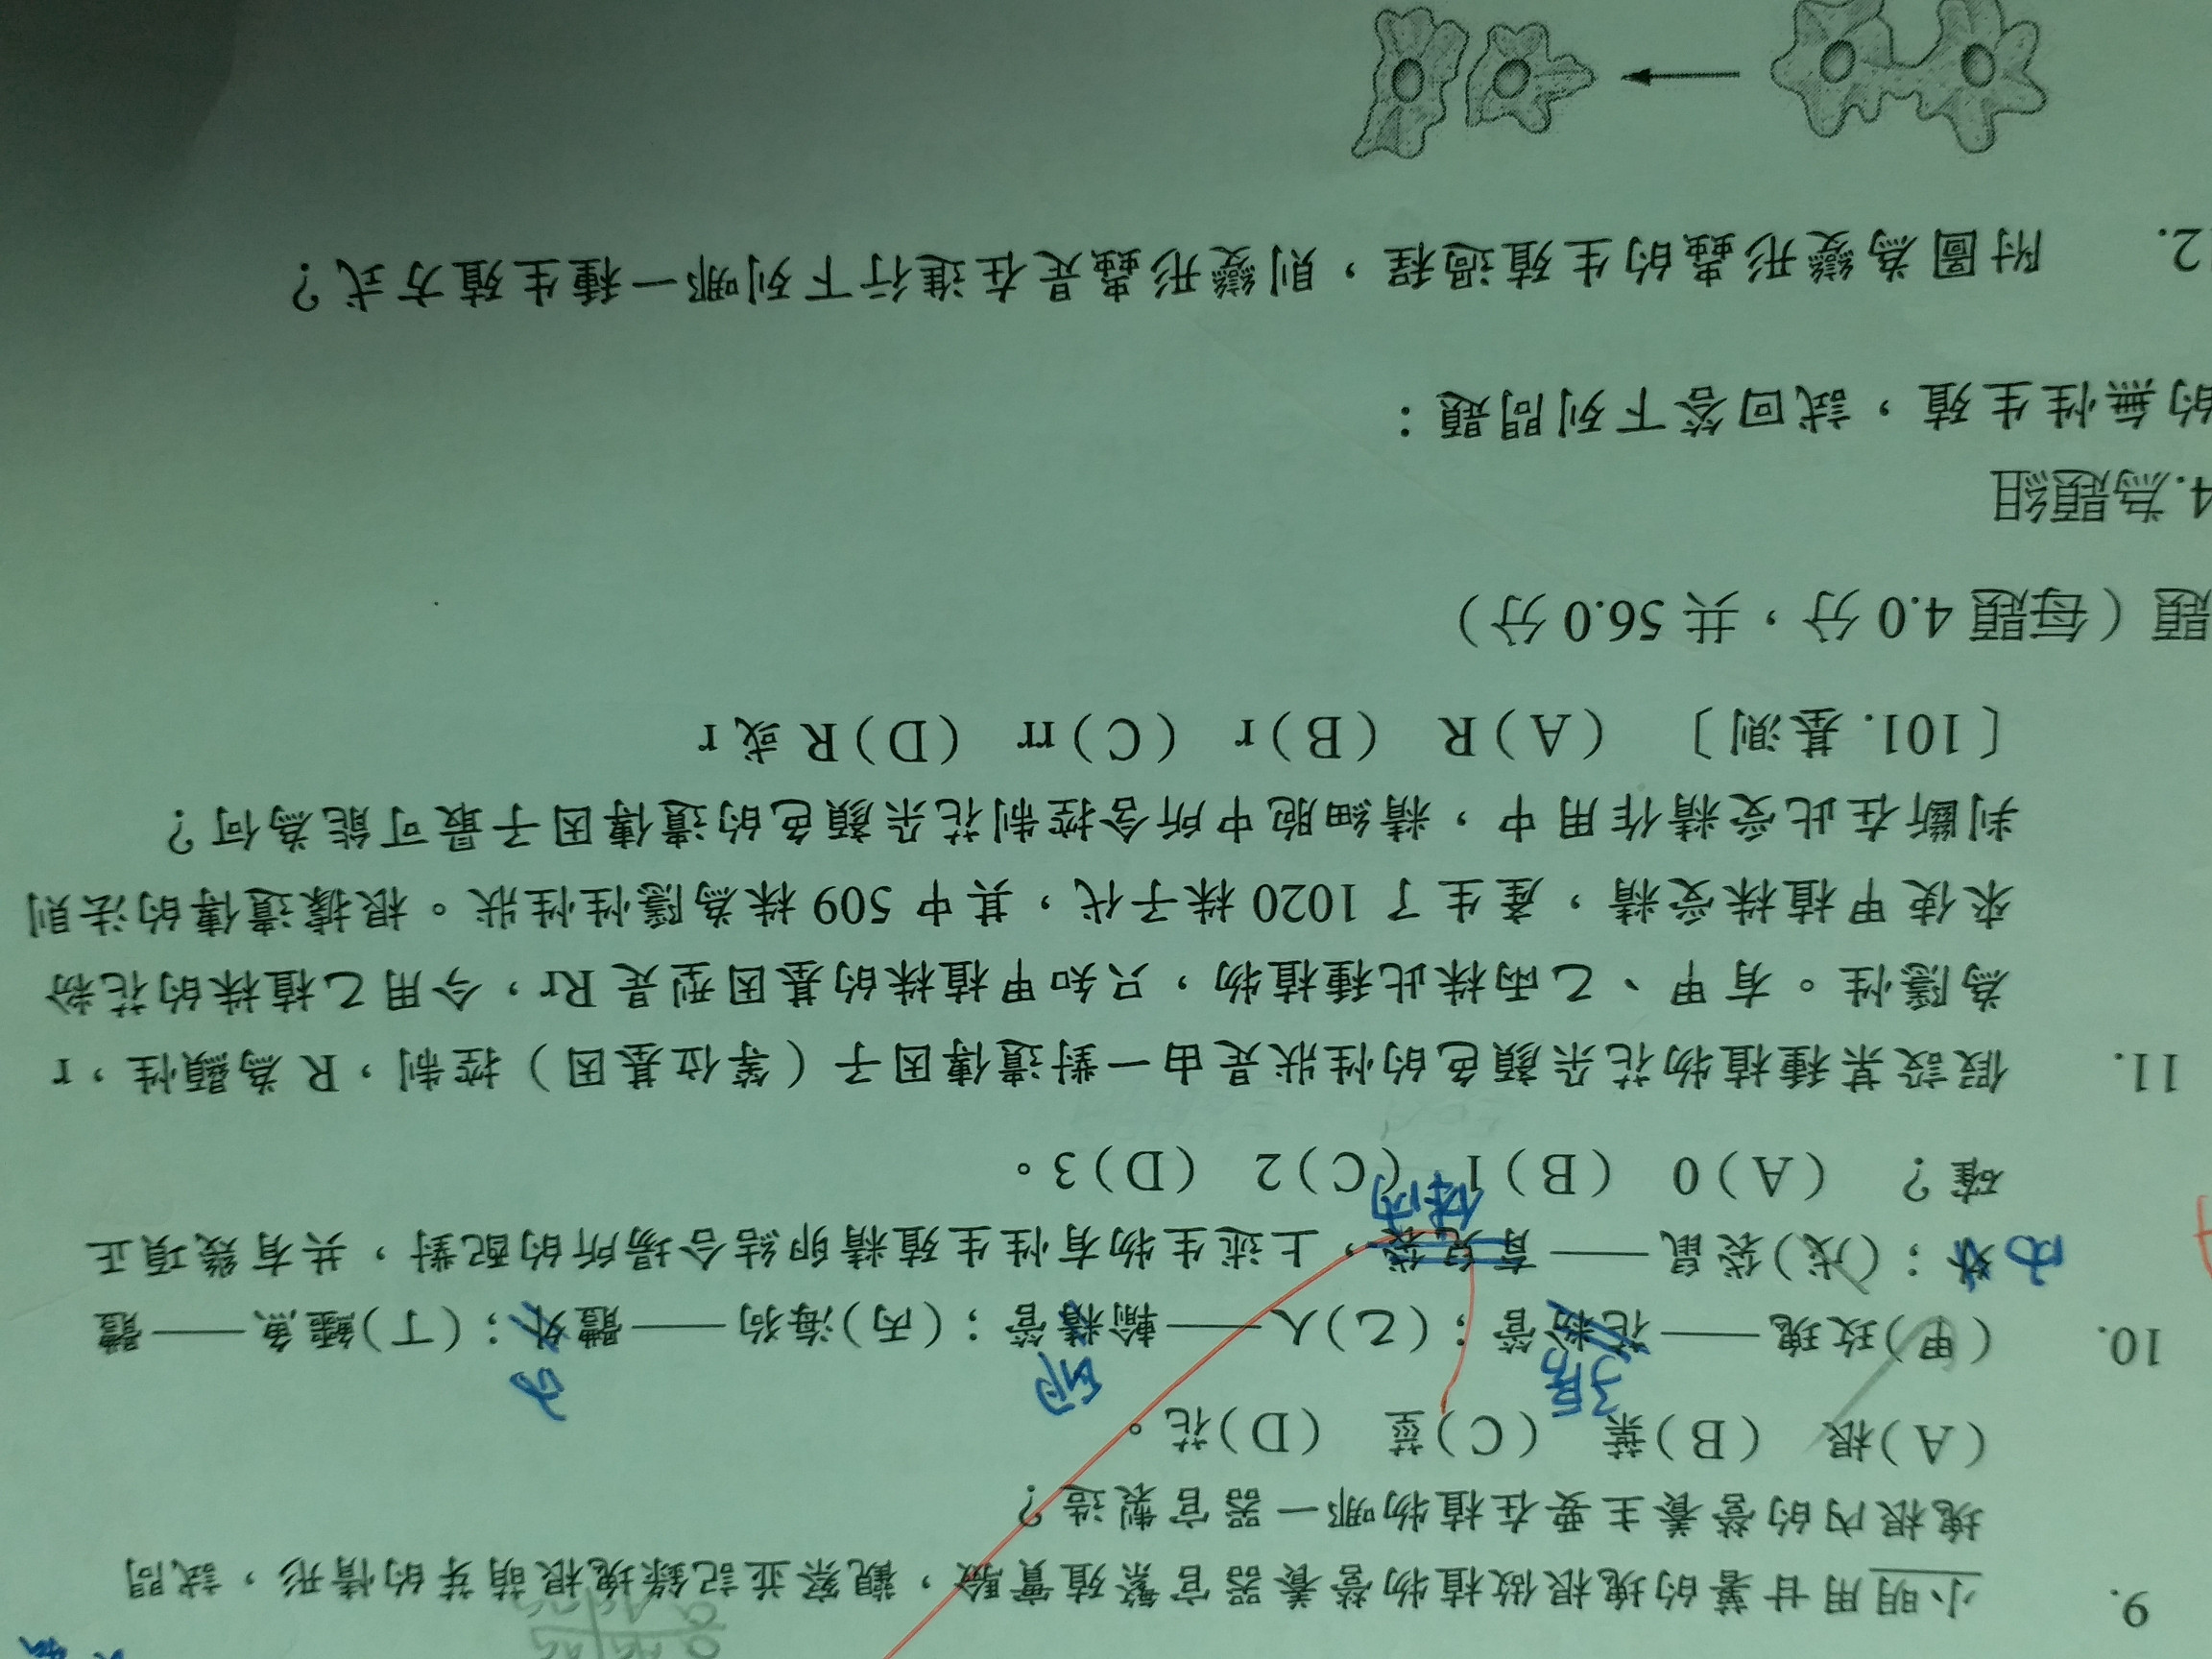 9. 小明用甘薯的塊根做植物營養器官繁殖實驗，觀察並記錄塊根萌芽的情形，試問
塊根內的營養主要在植物哪一器官製造？
(A)根 (B)葉 (C)莖 (D)花。
子房 卵 內
10. (甲)玫瑰——花粉管；(乙)人——輸精管；(丙)海狗——體外；(丁)鱷魚——體
內 外；(戊)袋鼠——育兒袋，上述生物有性生殖精卵結合場所的配對，共有幾項正
體內
確？ (A)0 (B)1 (C)2 (D)3。
11. 假設某種植物花朵顏色的性狀是由一對遺傳因子（等位基因）控制，R 為顯性，r
為隱性。有甲、乙兩株此種植物，只知甲植株的基因型是 Rr，今用乙植株的花粉
來使甲植株受精，產生了 1020 株子代，其中 509 株為隱性性狀。根據遺傳的法則
判斷在此受精作用中，精細胞中所含控制花朵顏色的遺傳因子最可能為何？
〔101. 基測〕 (A)R (B)r (C)rr (D)R 或 r
題（每題 4.0 分，共 56.0 分）
4.為題組
的無性生殖，試回答下列問題：
2. 附圖為變形蟲的生殖過程，則變形蟲是在進行下列哪一種生殖方式？